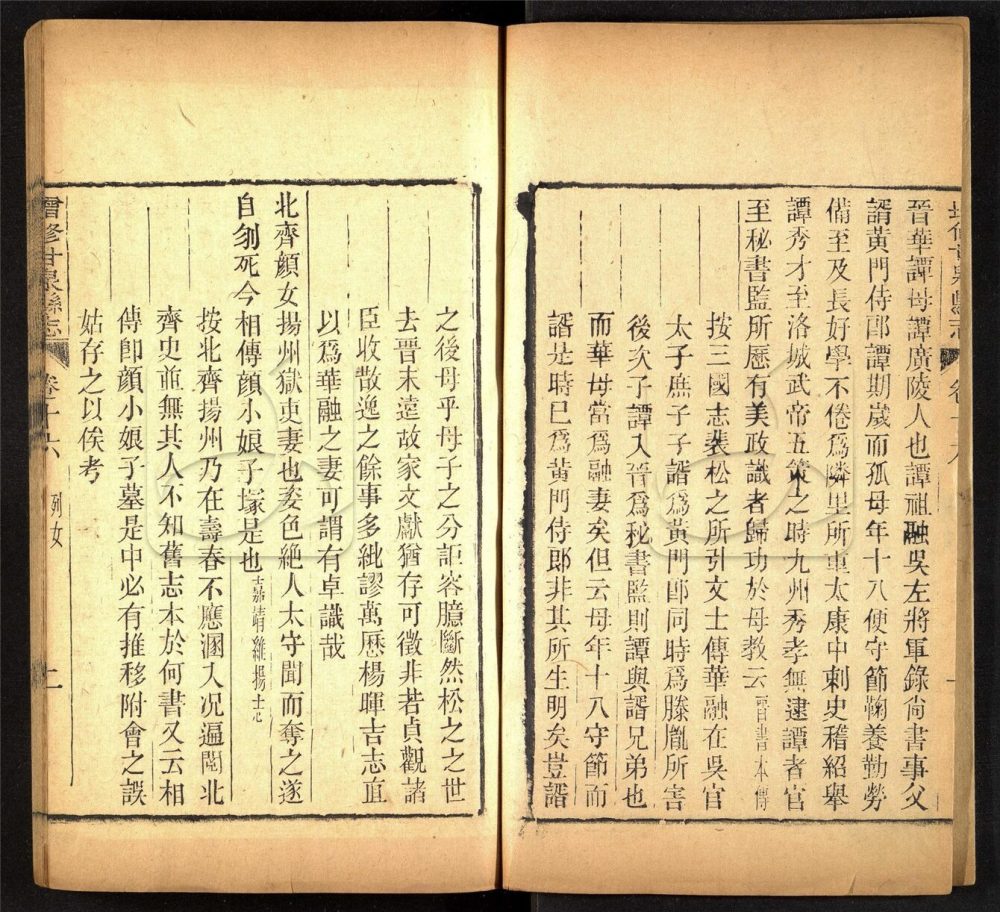 增修甘泉縣志
卷十六
晉華譚母譚廣陵人也譚祖融吳左將軍錄尙書事父
諝黃門侍郞譚期歲而孤母年十八便守節鞠養勤勞
備至及長好學不倦爲鄰里所重太康中刺史稽紹舉
譚秀才至洛城武帝五策之時九州秀孝無逮譚者官
至秘書監所歷有美政識者歸功於母教云晉書本傳
按三國志裴松之所引文士傳華融在吳官
太子庶子子諝爲黃門郞同時爲滕胤所害
後次子譚入晉爲秘書監則譚與諝兄弟也
而華母當爲融妻矣但云母年十八守節而
諝是時已爲黃門侍郞非其所生明矣豈諝
之後母乎母子之分詎容臆斷然松之之世
去晉末遠故家文獻猶存可徵非若貞觀諸
臣收散逸之餘事多紕謬萬歷楊暉吉志直
以爲華融之妻可謂有卓識哉
北齊顏女揚州獄吏妻也姿色絶人太守聞而奪之遂
自刎死今相傳顏小娘子塚是也嘉靖維揚士志
按北齊揚州乃在壽春不應溷入况遍閱北
齊史並無其人不知舊志本於何書又云相
傳卽顏小娘子墓是中必有推移附會之誤
姑存之以俟考
增修甘泉縣志
卷十六
列女
二